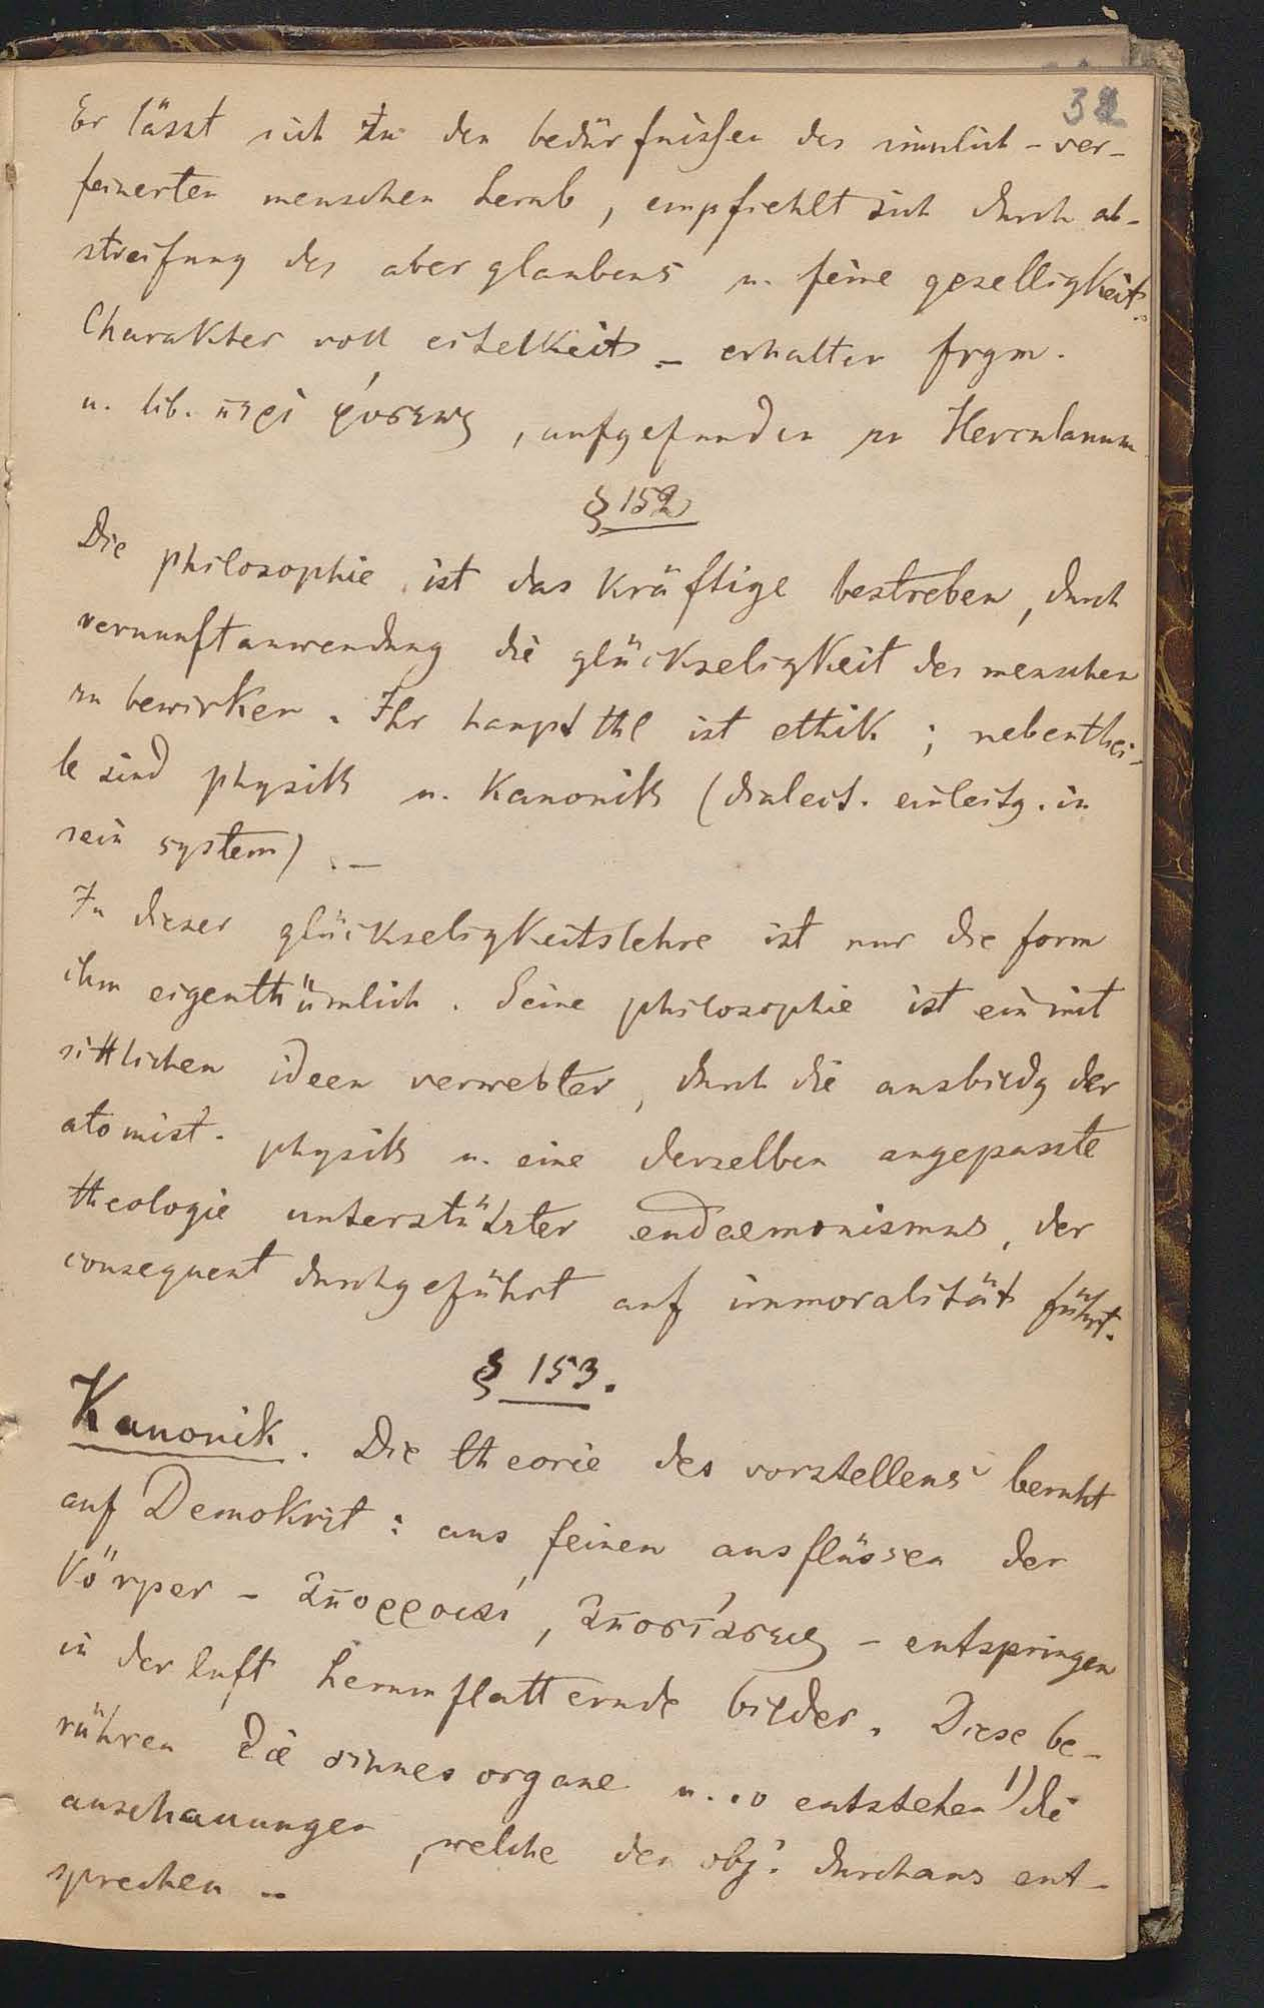 32
Er lässt sich zu den bedürfnissen des sinnlich-ver-
feinerten menschen herab, empfiehlt sich durch ab-
streifung des aberglaubens u. feine geselligkeit.
Charakter voll eitelkeit – erhalten frgm.
u. lib. περὶ φύσεως, aufgefunden zu Herculanum
§ 152
Die philosophie ist das kräftige bestreben, durch
vernunftanwendung die glückseligkeit des menschen
zu bewirken. Ihr haupt thl ist ethik; nebenthei-
le sind physik u. Kanonik (dialect. einleitg. in
sein system). –
In dieser glückseligkeitslehre ist nur die form
ihm eigenthümlich. Seine philosophie ist ein mit
sittlichen ideen verwebter, durch die ausbildg der
atomist. physik u. eine derselben angepasste
theologie unterstützter eudaemonismus, der
consequent durchgeführt auf immoralität führt.
§ 153.
Kanonik. Die theorie des vorstellens beruht
auf Demokrit: aus feinen ausflüssen der
Körper – ἀποῤῥοαί, ἀποστάσεις – entspringen
in der luft herumflatternde bilder. Diese be-
rühren die sinnesorgane u. so entstehen 1) die
anschauungen, welche den obj. durchaus ent-
sprechen..